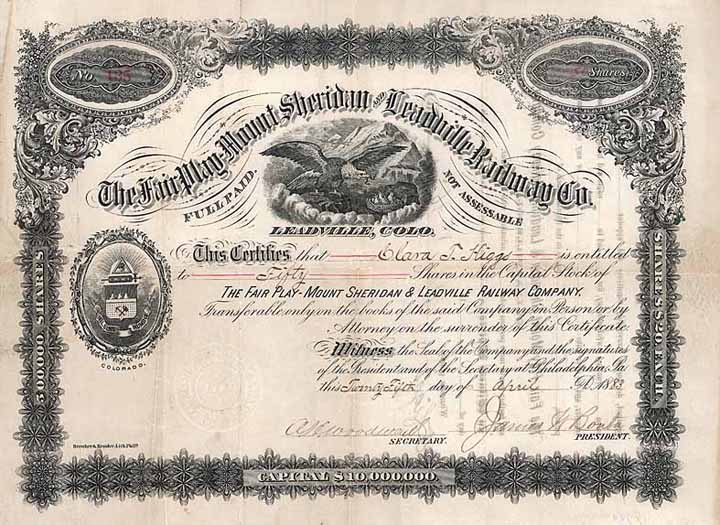 No. 135
Shares
The Fair Play-Mount Sheridan AND Leadville Railway Co.
FULL PAID.
NOT ASSESSABLE
LEADVILLE, COLO.
This Certifies that Clara T. Higgs is entitled
to Fifty Shares in the Capital Stock of
THE FAIR PLAY-MOUNT SHERIDAN & LEADVILLE RAILWAY COMPANY,
Transferable only on the books of the said Company in Person or by
Attorney on the surrender of this Certificate.
Witness the Seal of the Company and the signatures
of the President and of the Secretary at Philadelphia, Pa
this Twenty Fifth day of April A.D. 1883
SECRETARY.
James
PRESIDENT.
COLORADO.
CAPITAL $10,000,000.